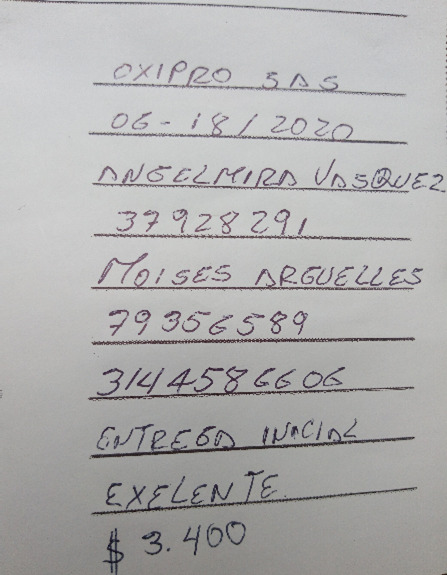 OXIPRO SAS
06-18/2020
ANGELMIRA VASQUEZ
37928291
MOISES ARGUELLES
79356589
3144586606
ENTREGA INICIAL
EXELENTE
$ 3.400